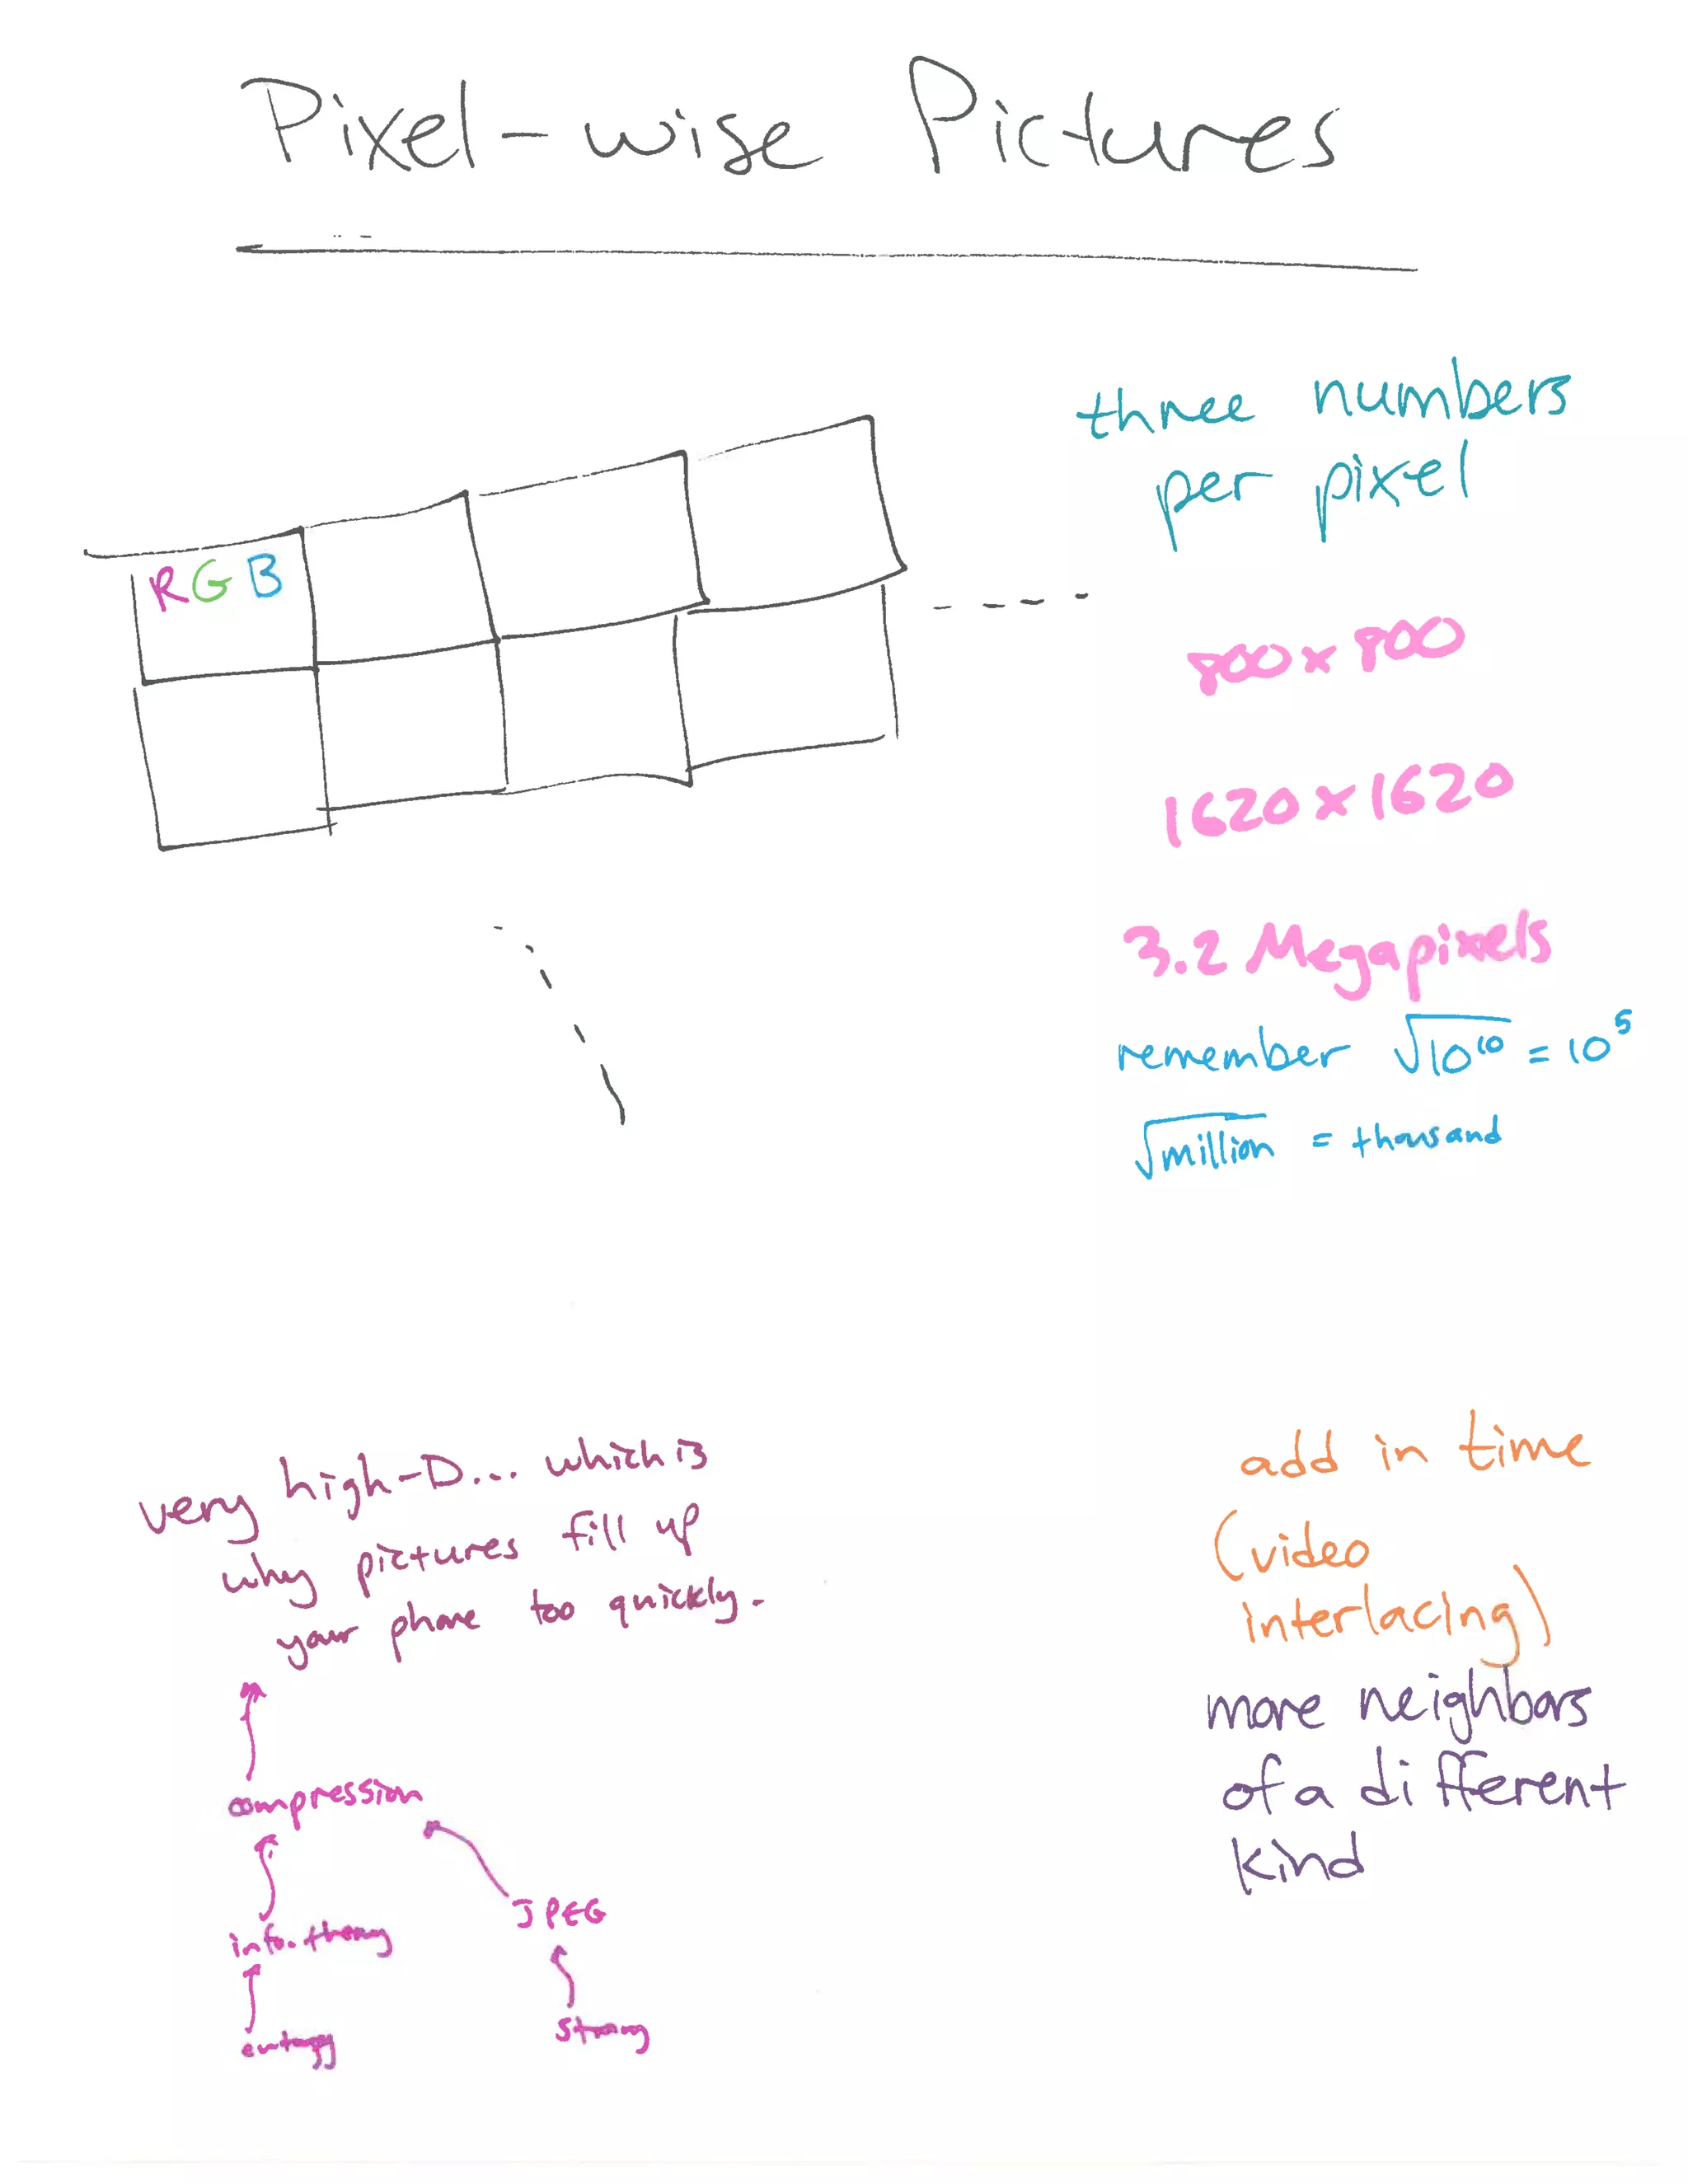 Pixel-wise Pictures
three numbers
per pixel
R G B
800 x 800
1620 x 1620
3.2 Megapixels
remember √10^10 = 10^5
√million = thousand
very high-D... which is
why pictures fill up
your phone too quickly.
compression
JPEG
info. theory
entropy
Strang
add in time
(video
interlacing)
more neighbors
of a different
kind